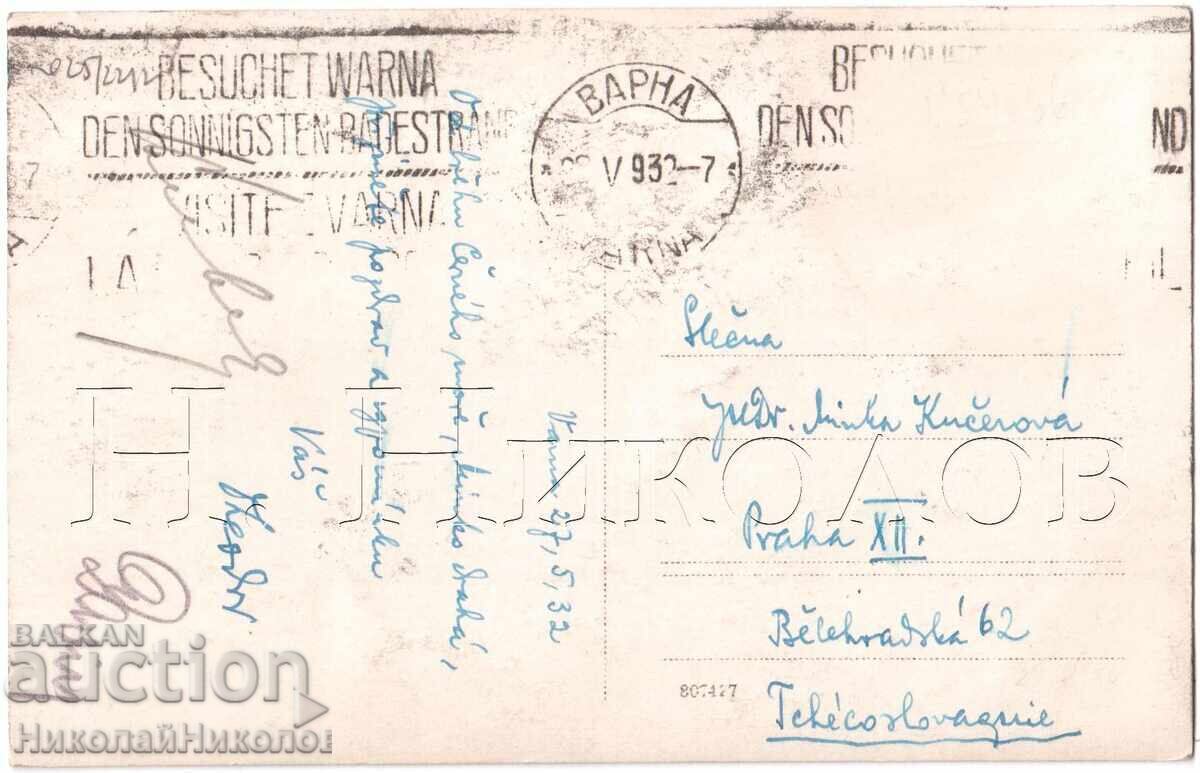 BESUCHET WARNA
DEN SONNIGSTEN BADESTRAND
VISITE VARNA
LA
ВАРНА
V 932-7
VARNA
BESUCHET
DEN SO ND
Varna 27, 5, 32
Od břehu Černého moře, Minko drahá,
přijměte pozdrav a vzpomínku
Váš
Slečna
JUDr. Minka Kučerová
Praha XII.
Bělehradská 62
Tchécoslovaquie
807427
Н. НИКОЛОВ
BALKAN
auction
НиколайНиколов